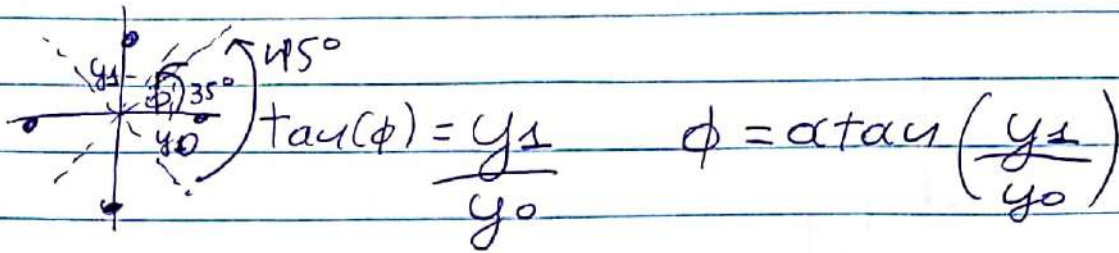 45°
y1 ϕ 35°
y0
tan(ϕ) = y1/y0 ϕ = atan(y1/y0)